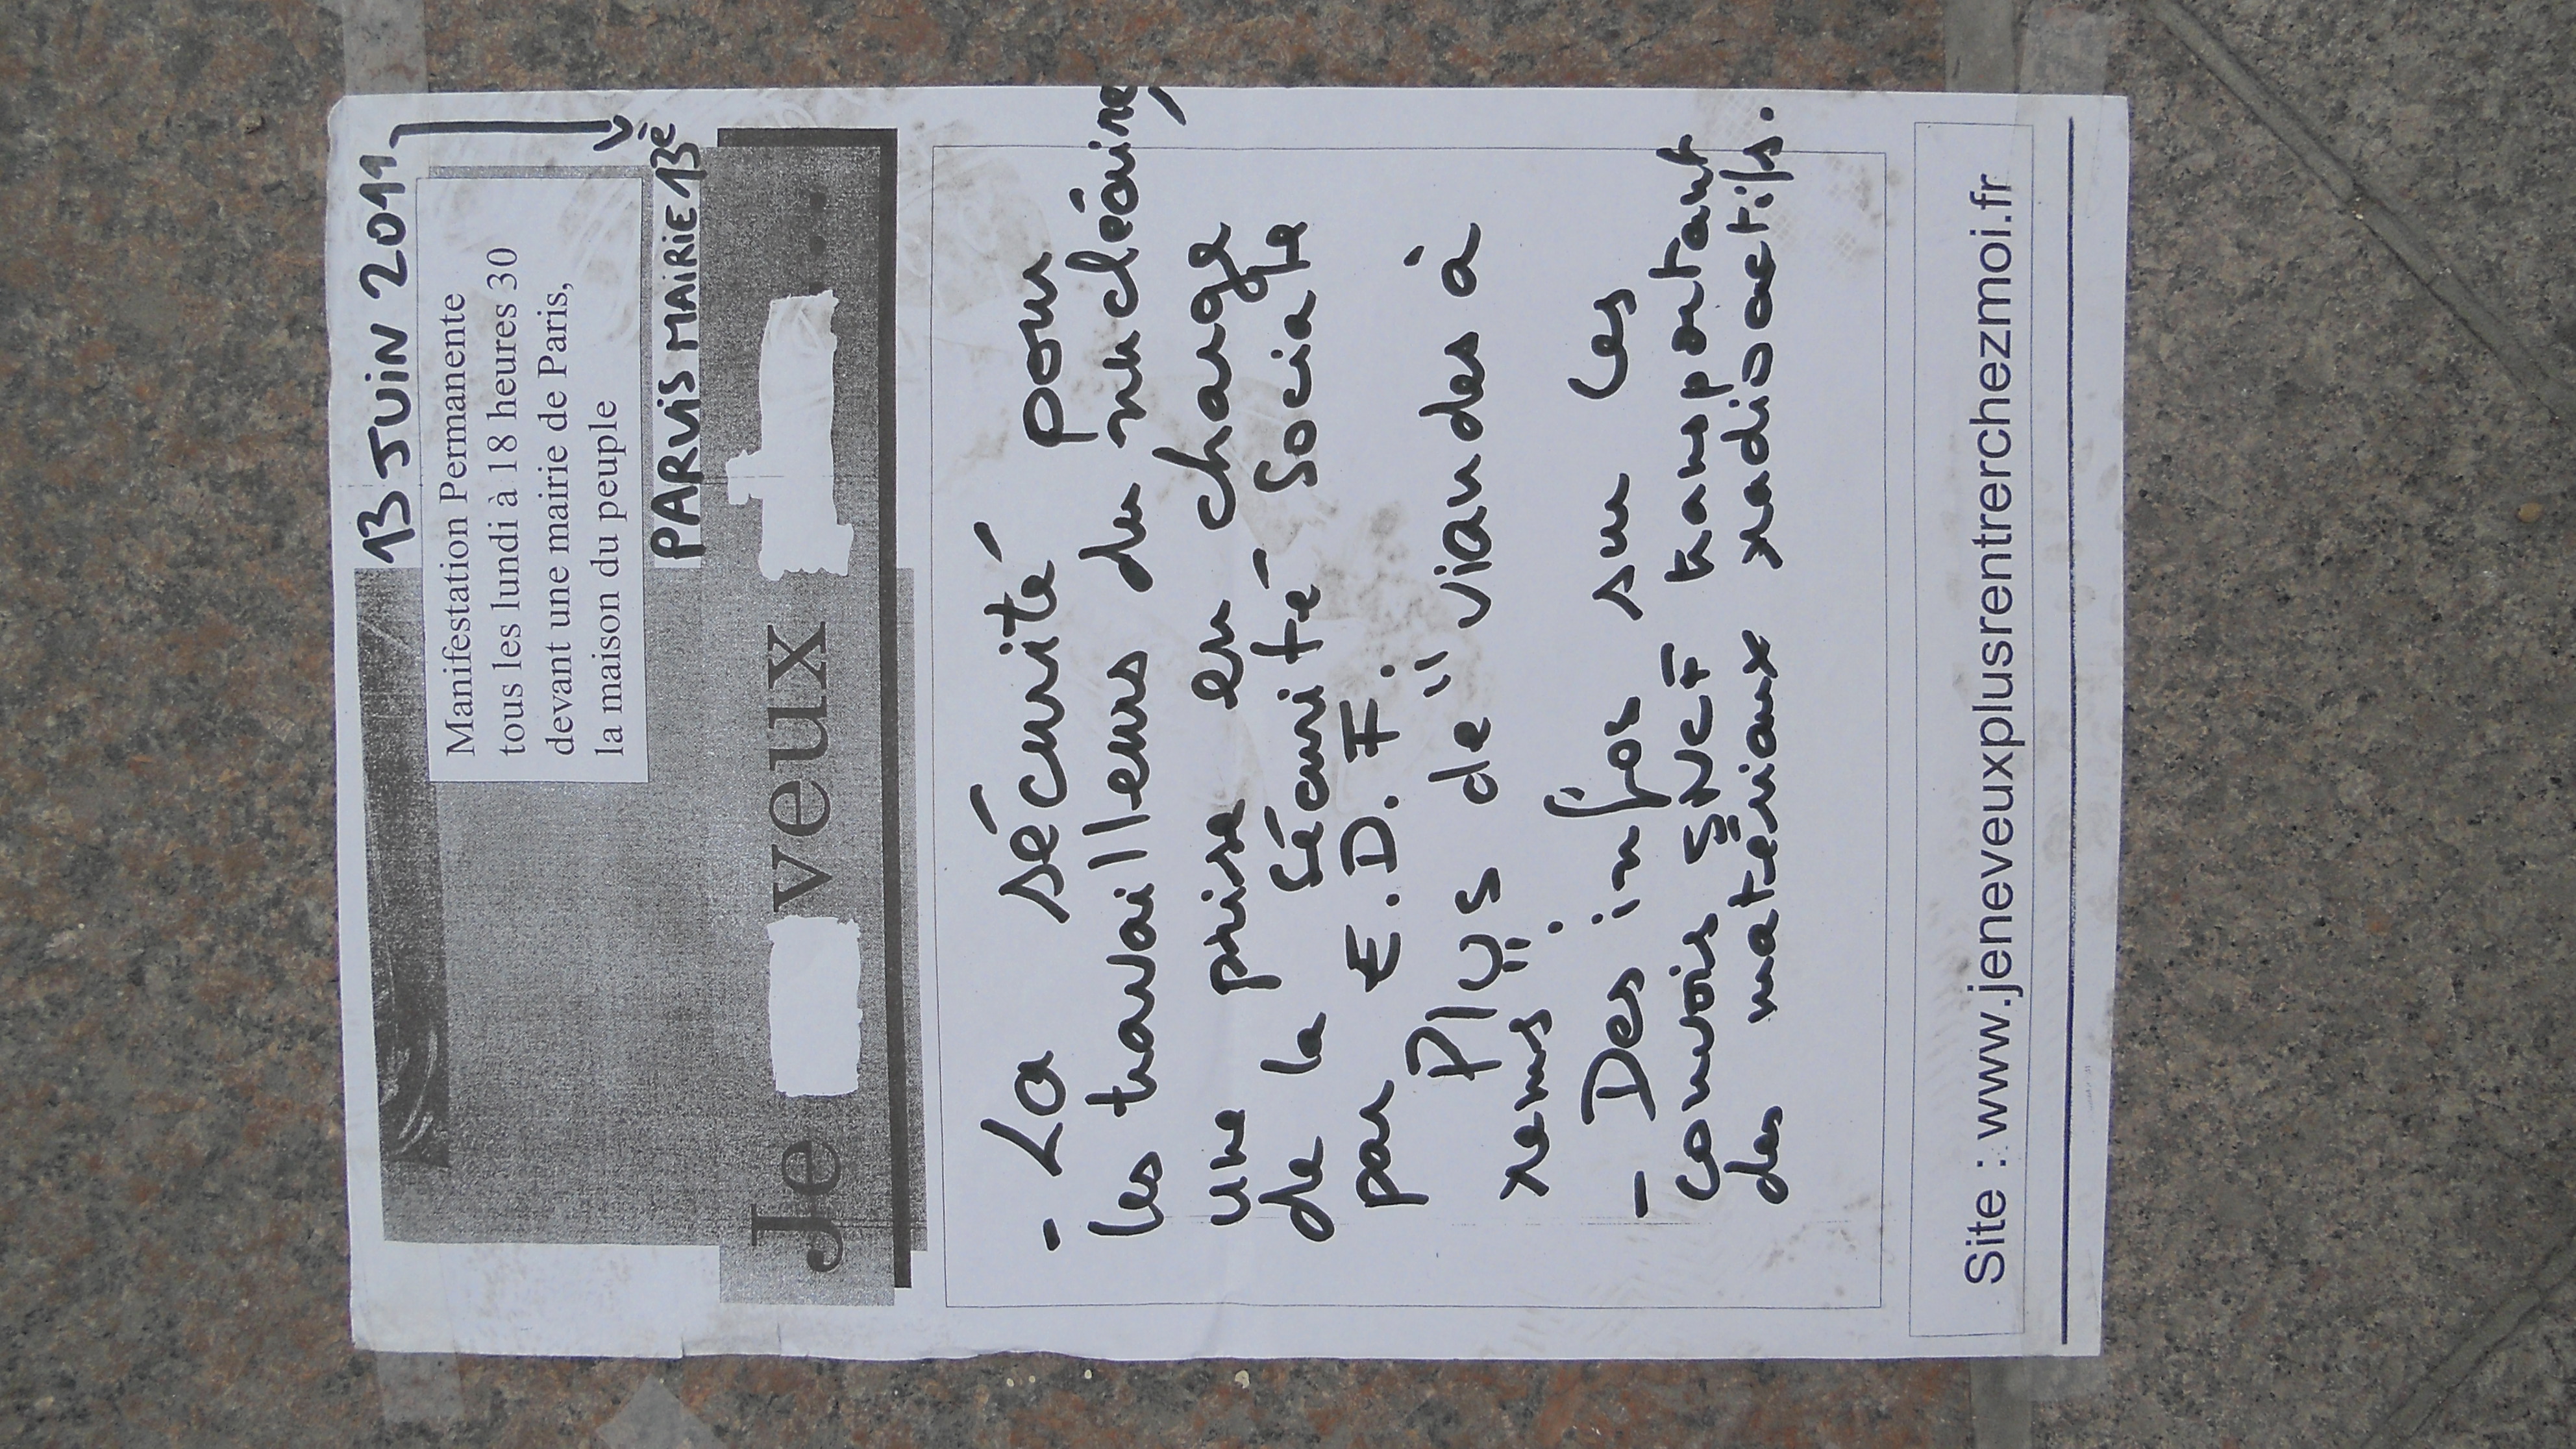 13 JUIN 2011
Manifestation Permanente
tous les lundi à 18 heures 30
devant une mairie de Paris,
la maison du peuple
PARVIS MAIRIE 13è
Je veux ...
- La sécurité pour
les travailleurs du nucléaire,
une prise en charge
de la Sécurité Sociale
par E.D.F.
Plus de "viandes à
rems".
- Des infos sur les
convois SNCF transportant
des matériaux radioactifs.
Site : www.jeneveuxplusrentrerchezmoi.fr